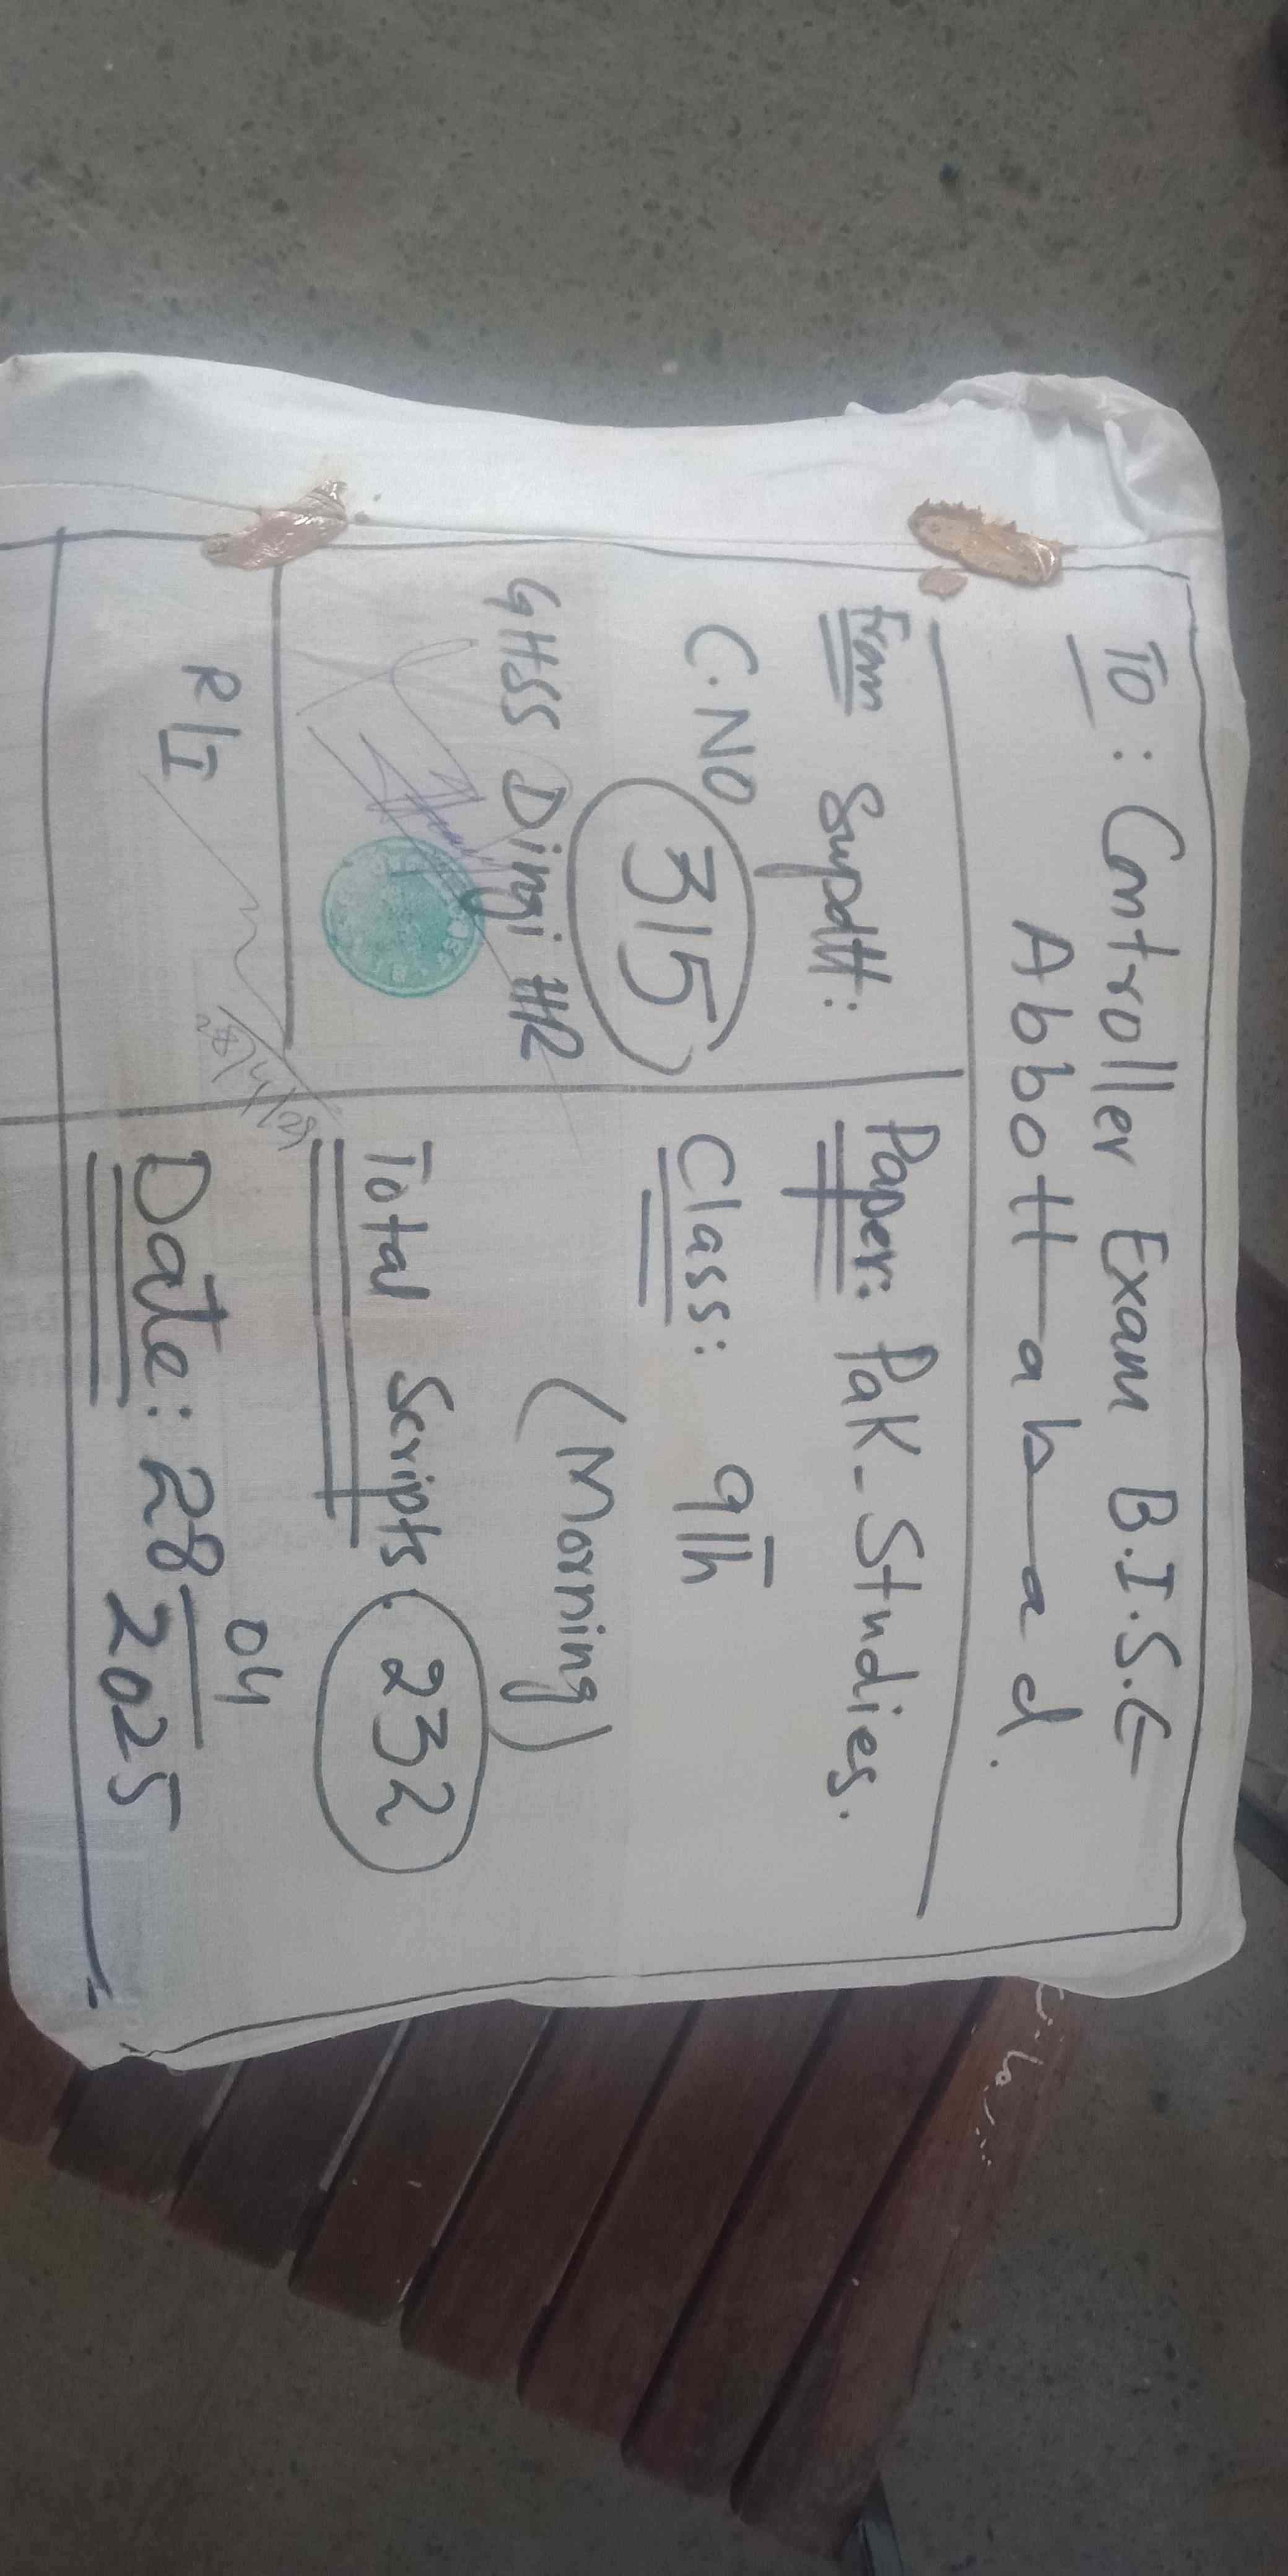 To: Controller Exam B.I.S.E
Abbottabad.
From Supdtt:
C.NO
315
GHSS Dingi HR
R/I
28/4/25
Paper: Pak-Studies.
Class: 9th
(Morning)
Total Scripts: 232
Date: 28/04
2025